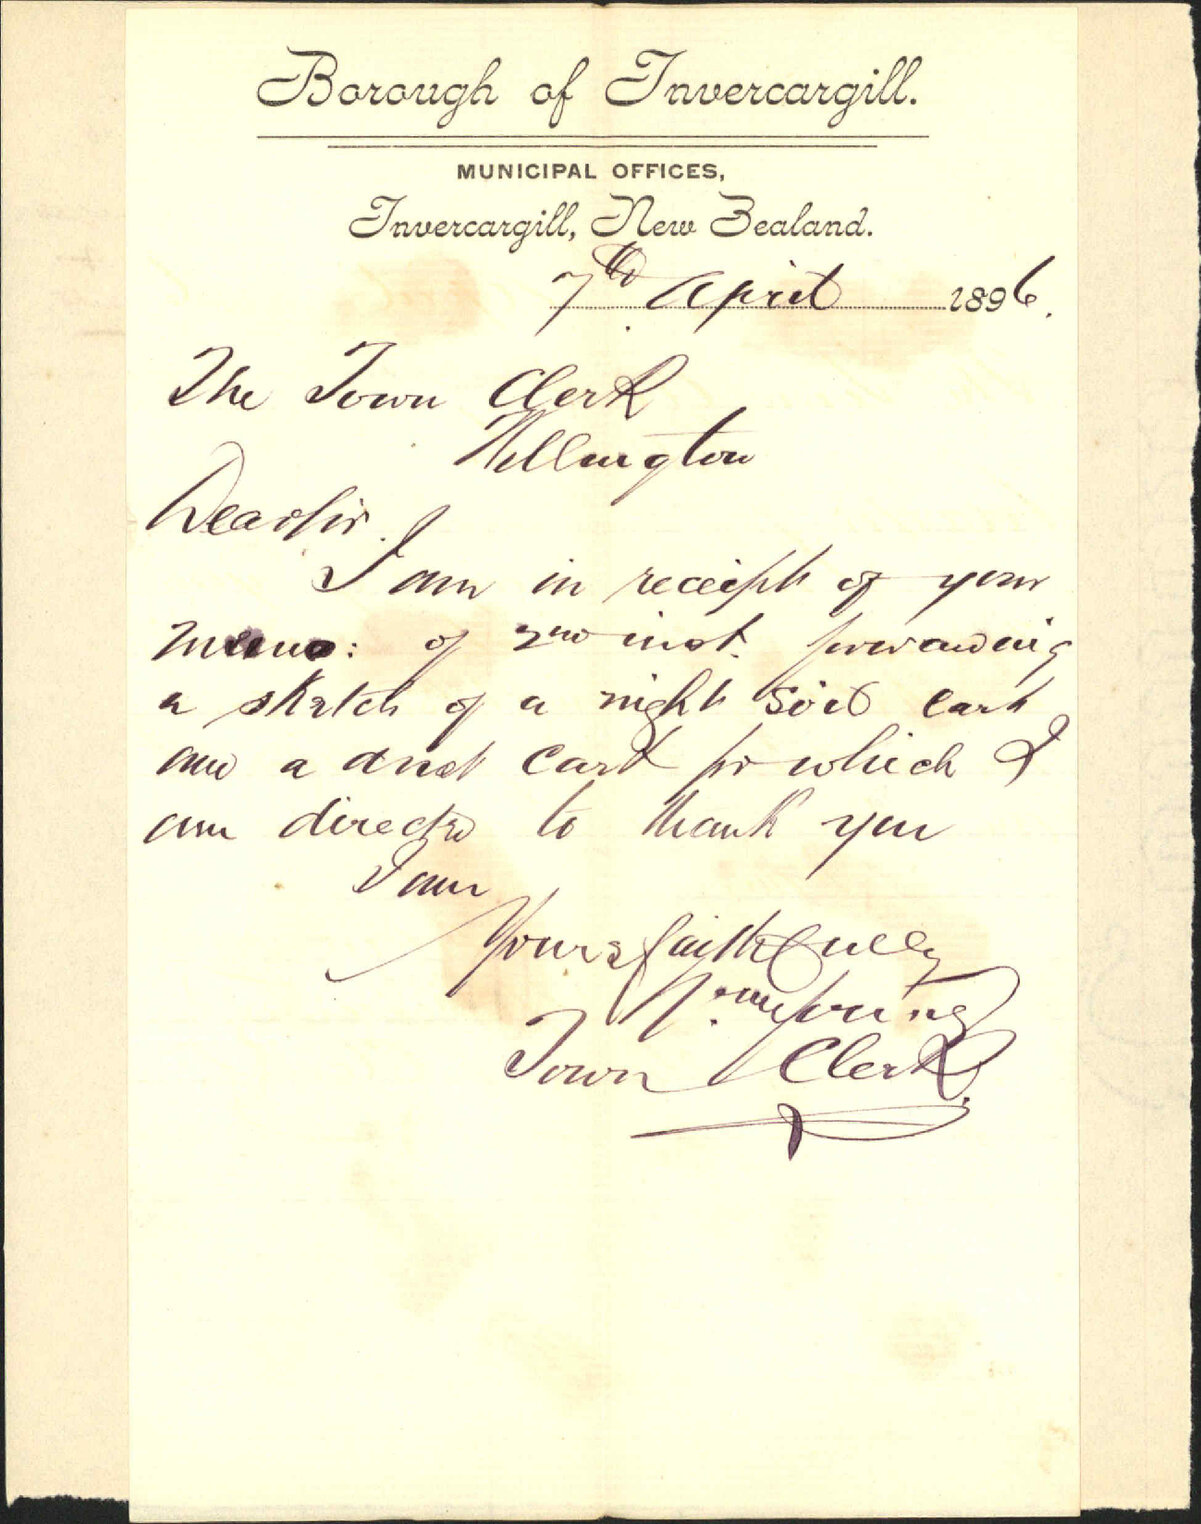 Borough of Invercargill.
MUNICIPAL OFFICES,
Invercargill, New Zealand.
7th April 1896.
The Town Clerk
Wellington
Dear Sir.
I am in receipt of your
memo: of 2nd inst. forwarding
a sketch of a night soil cart
and a dust cart for which I
am directed to thank you
I am
Yours faithfully
Town Clerk.